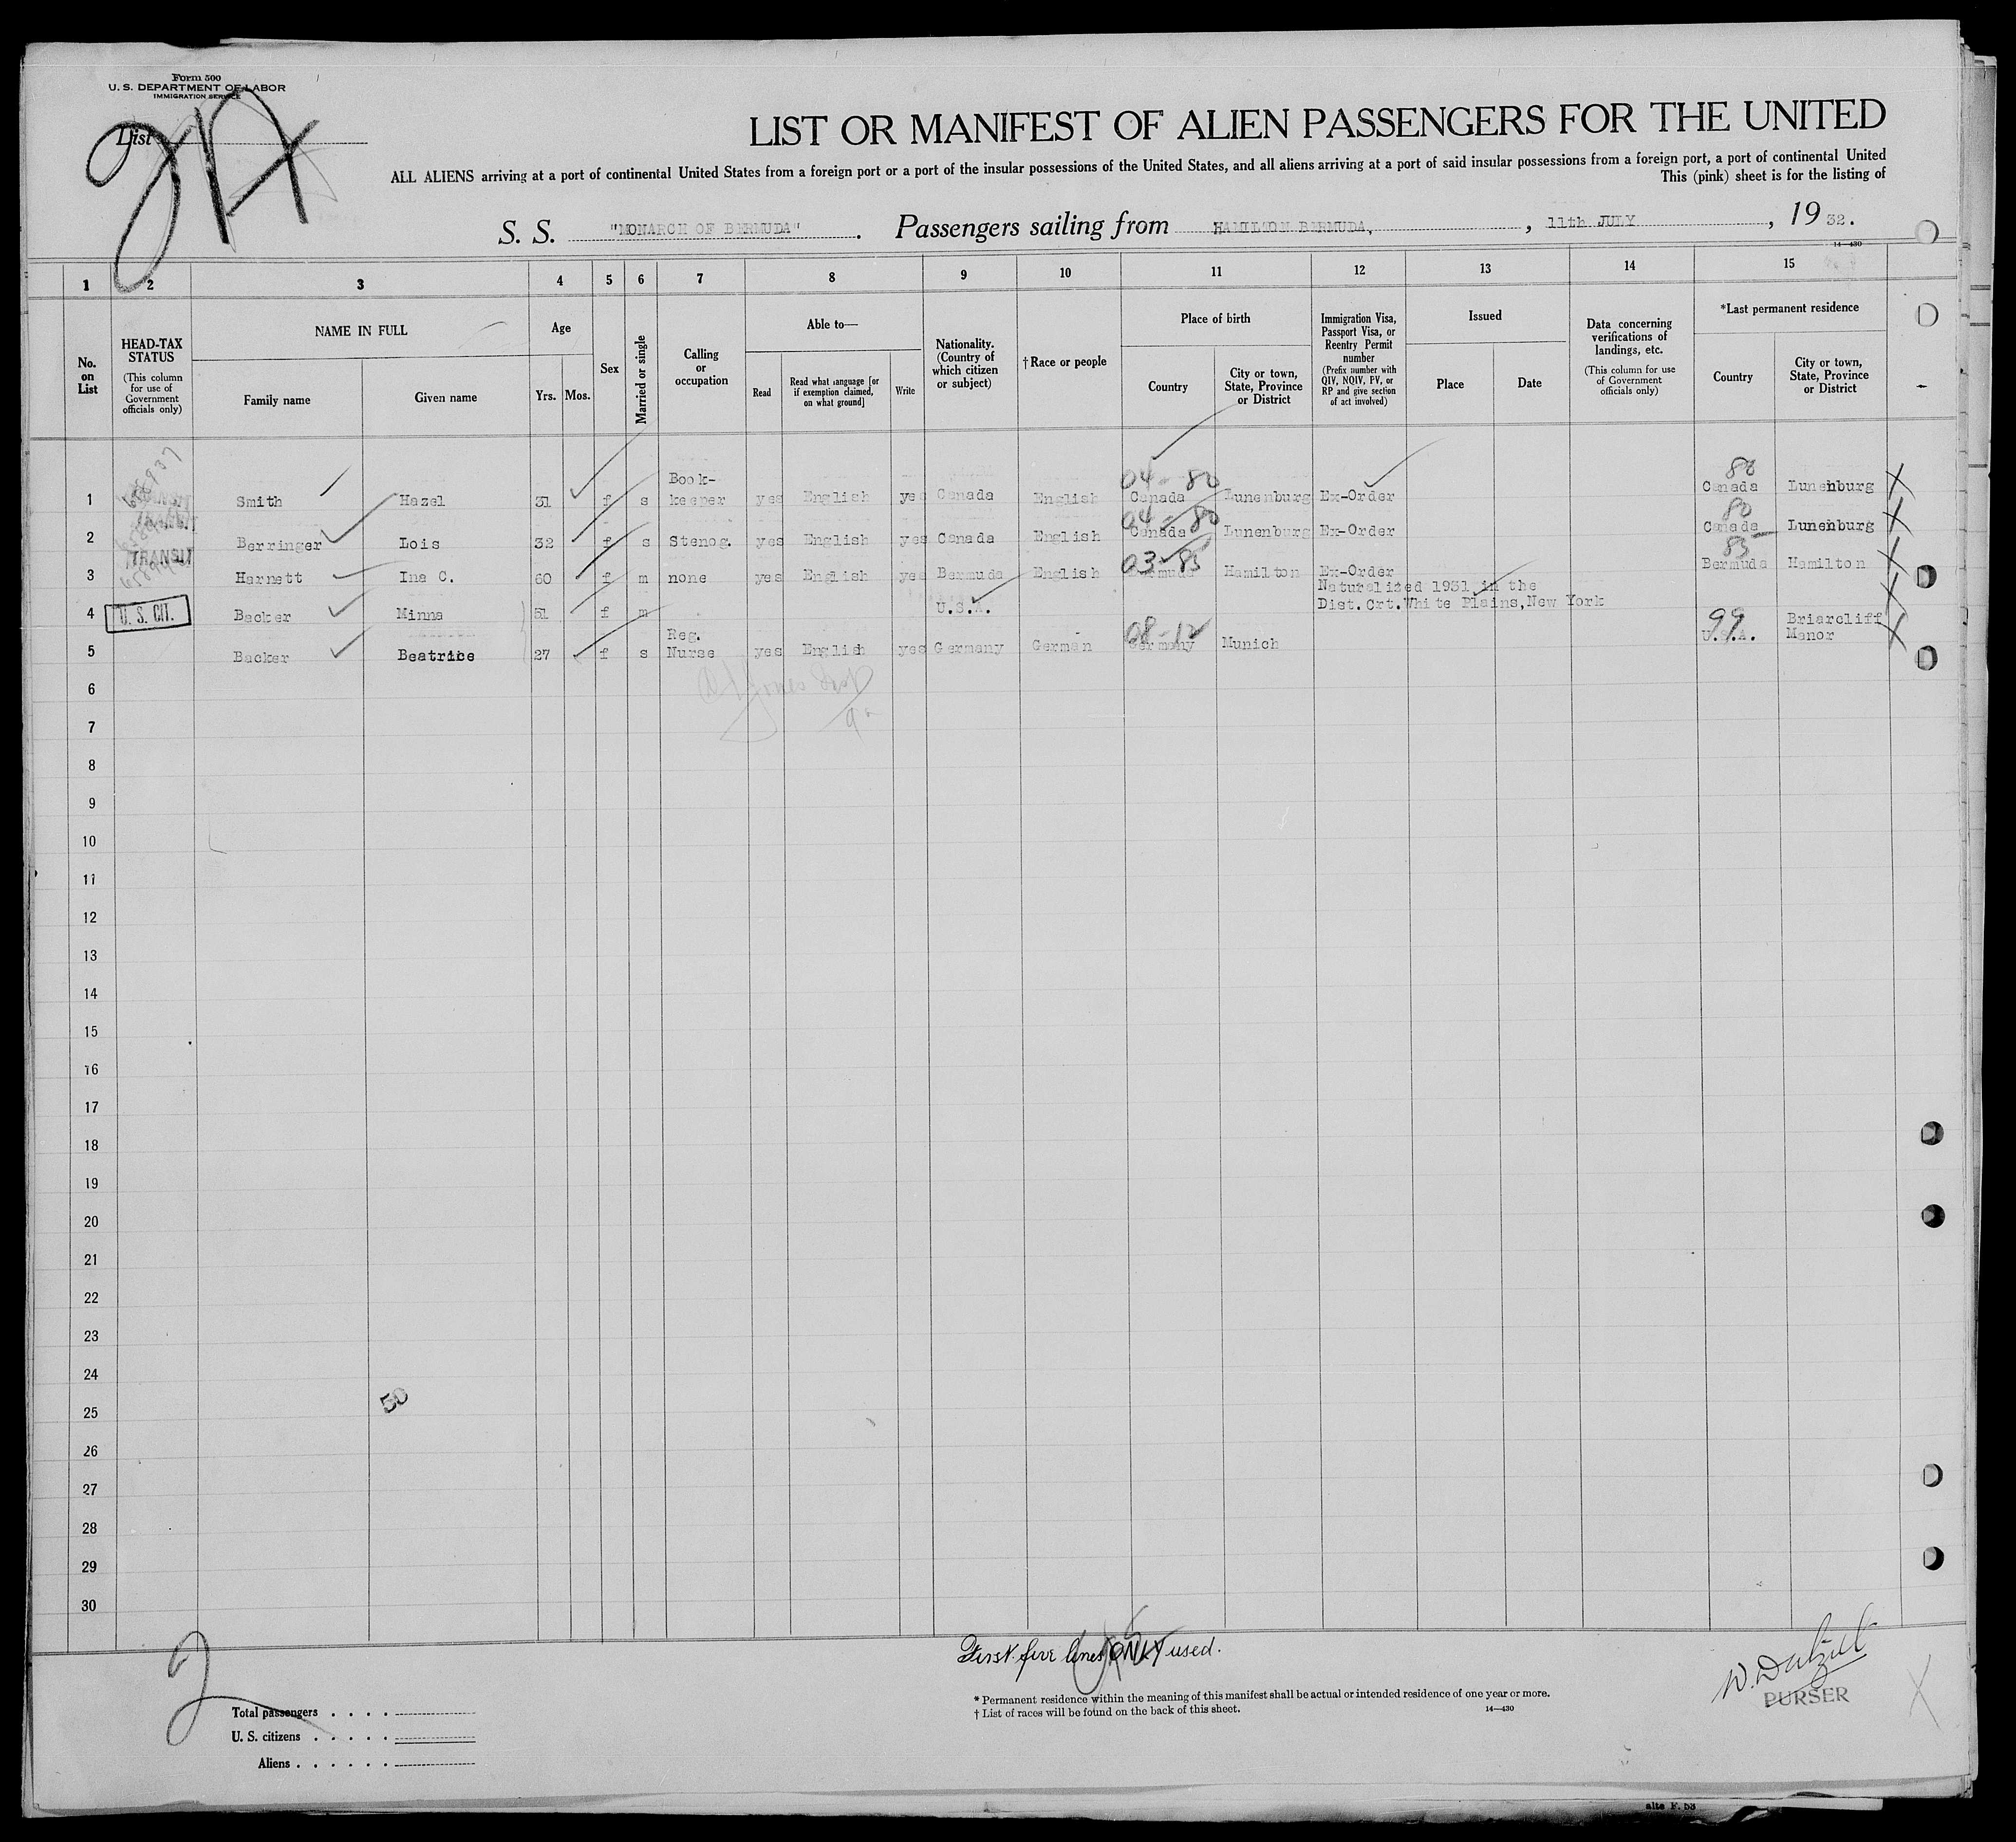 Form 500
U. S. DEPARTMENT OF LABOR
IMMIGRATION SERVICE
List
LIST OR MANIFEST OF ALIEN PASSENGERS FOR THE UNITED
ALL ALIENS arriving at a port of continental United States from a foreign port or a port of the insular possessions of the United States, and all aliens arriving at a port of said insular possessions from a foreign port, a port of continental United
This (pink) sheet is for the listing of
S. S. "MONARCH OF BERMUDA". Passengers sailing from HAMILTON BERMUDA, , 11th JULY , 19 32.
14—430
1 2 3 4 5 6 7 8 9 10 11 12 13 14 15
No. on List
HEAD-TAX STATUS (This column for use of Government officials only)
NAME IN FULL
Family name Given name
Age
Yrs. Mos.
Sex
Married or single
Calling or occupation
Able to—
Read Read what language [or if exemption claimed, on what ground] Write
Nationality. (Country of which citizen or subject)
†Race or people
Place of birth
Country City or town, State, Province or District
Immigration Visa, Passport Visa, or Reentry Permit number (Prefix number with QIV, NQIV, PV, or RP and give section of act involved)
Issued
Place Date
Data concerning verifications of landings, etc. (This column for use of Government officials only)
*Last permanent residence
Country City or town, State, Province or District
04-80 80
1 Smith Hazel 31 f s Book-keeper yes English yes Canada English Canada Lunenburg Ex-Order Canada Lunenburg
04-80 80
2 Berringer Lois 32 f s Stenog. yes English yes Canada English Canada Lunenburg Ex-Order Canada Lunenburg
TRANSIT 03-85 85
3 Harnett Ina C. 60 f m none yes English yes Bermuda English Bermuda Hamilton Ex-Order Bermuda Hamilton
4 U. S. CIT. Backer Minna 51 f m U.S.A. Naturalized 1931 in the Dist. Crt. White Plains, New York
08-12 99
5 Backer Beatrice 27 f s Reg. Nurse yes English yes Germany German Germany Munich U.S.A. Briarcliff Manor
6
7
8
9
10
11
12
13
14
15
16
17
18
19
20
21
22
23
24
50
25
26
27
28
29
30
First five lines ONLY used.
2
W. Dalziel
PURSER
* Permanent residence within the meaning of this manifest shall be actual or intended residence of one year or more.
† List of races will be found on the back of this sheet.
14—430
Total passengers
U. S. citizens
Aliens